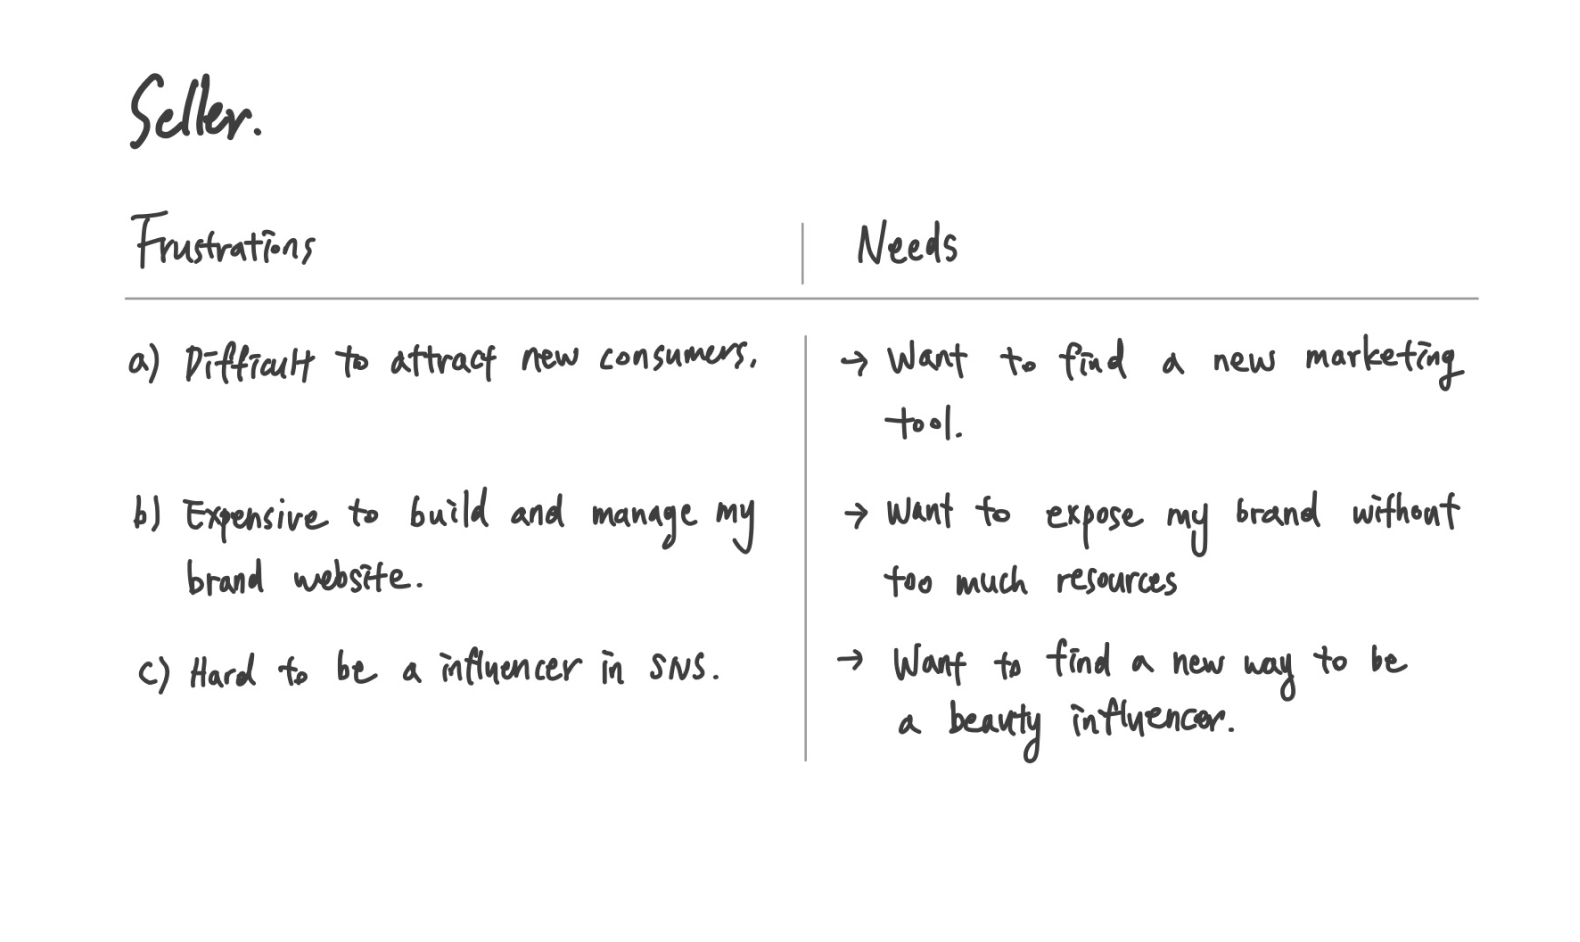 Seller.
Frustrations
Needs
a) Difficult to attract new consumers.
→ Want to find a new marketing
tool.
b) Expensive to build and manage my
brand website.
→ Want to expose my brand without
too much resources
c) Hard to be a influencer in SNS.
→ Want to find a new way to be
a beauty influencer.